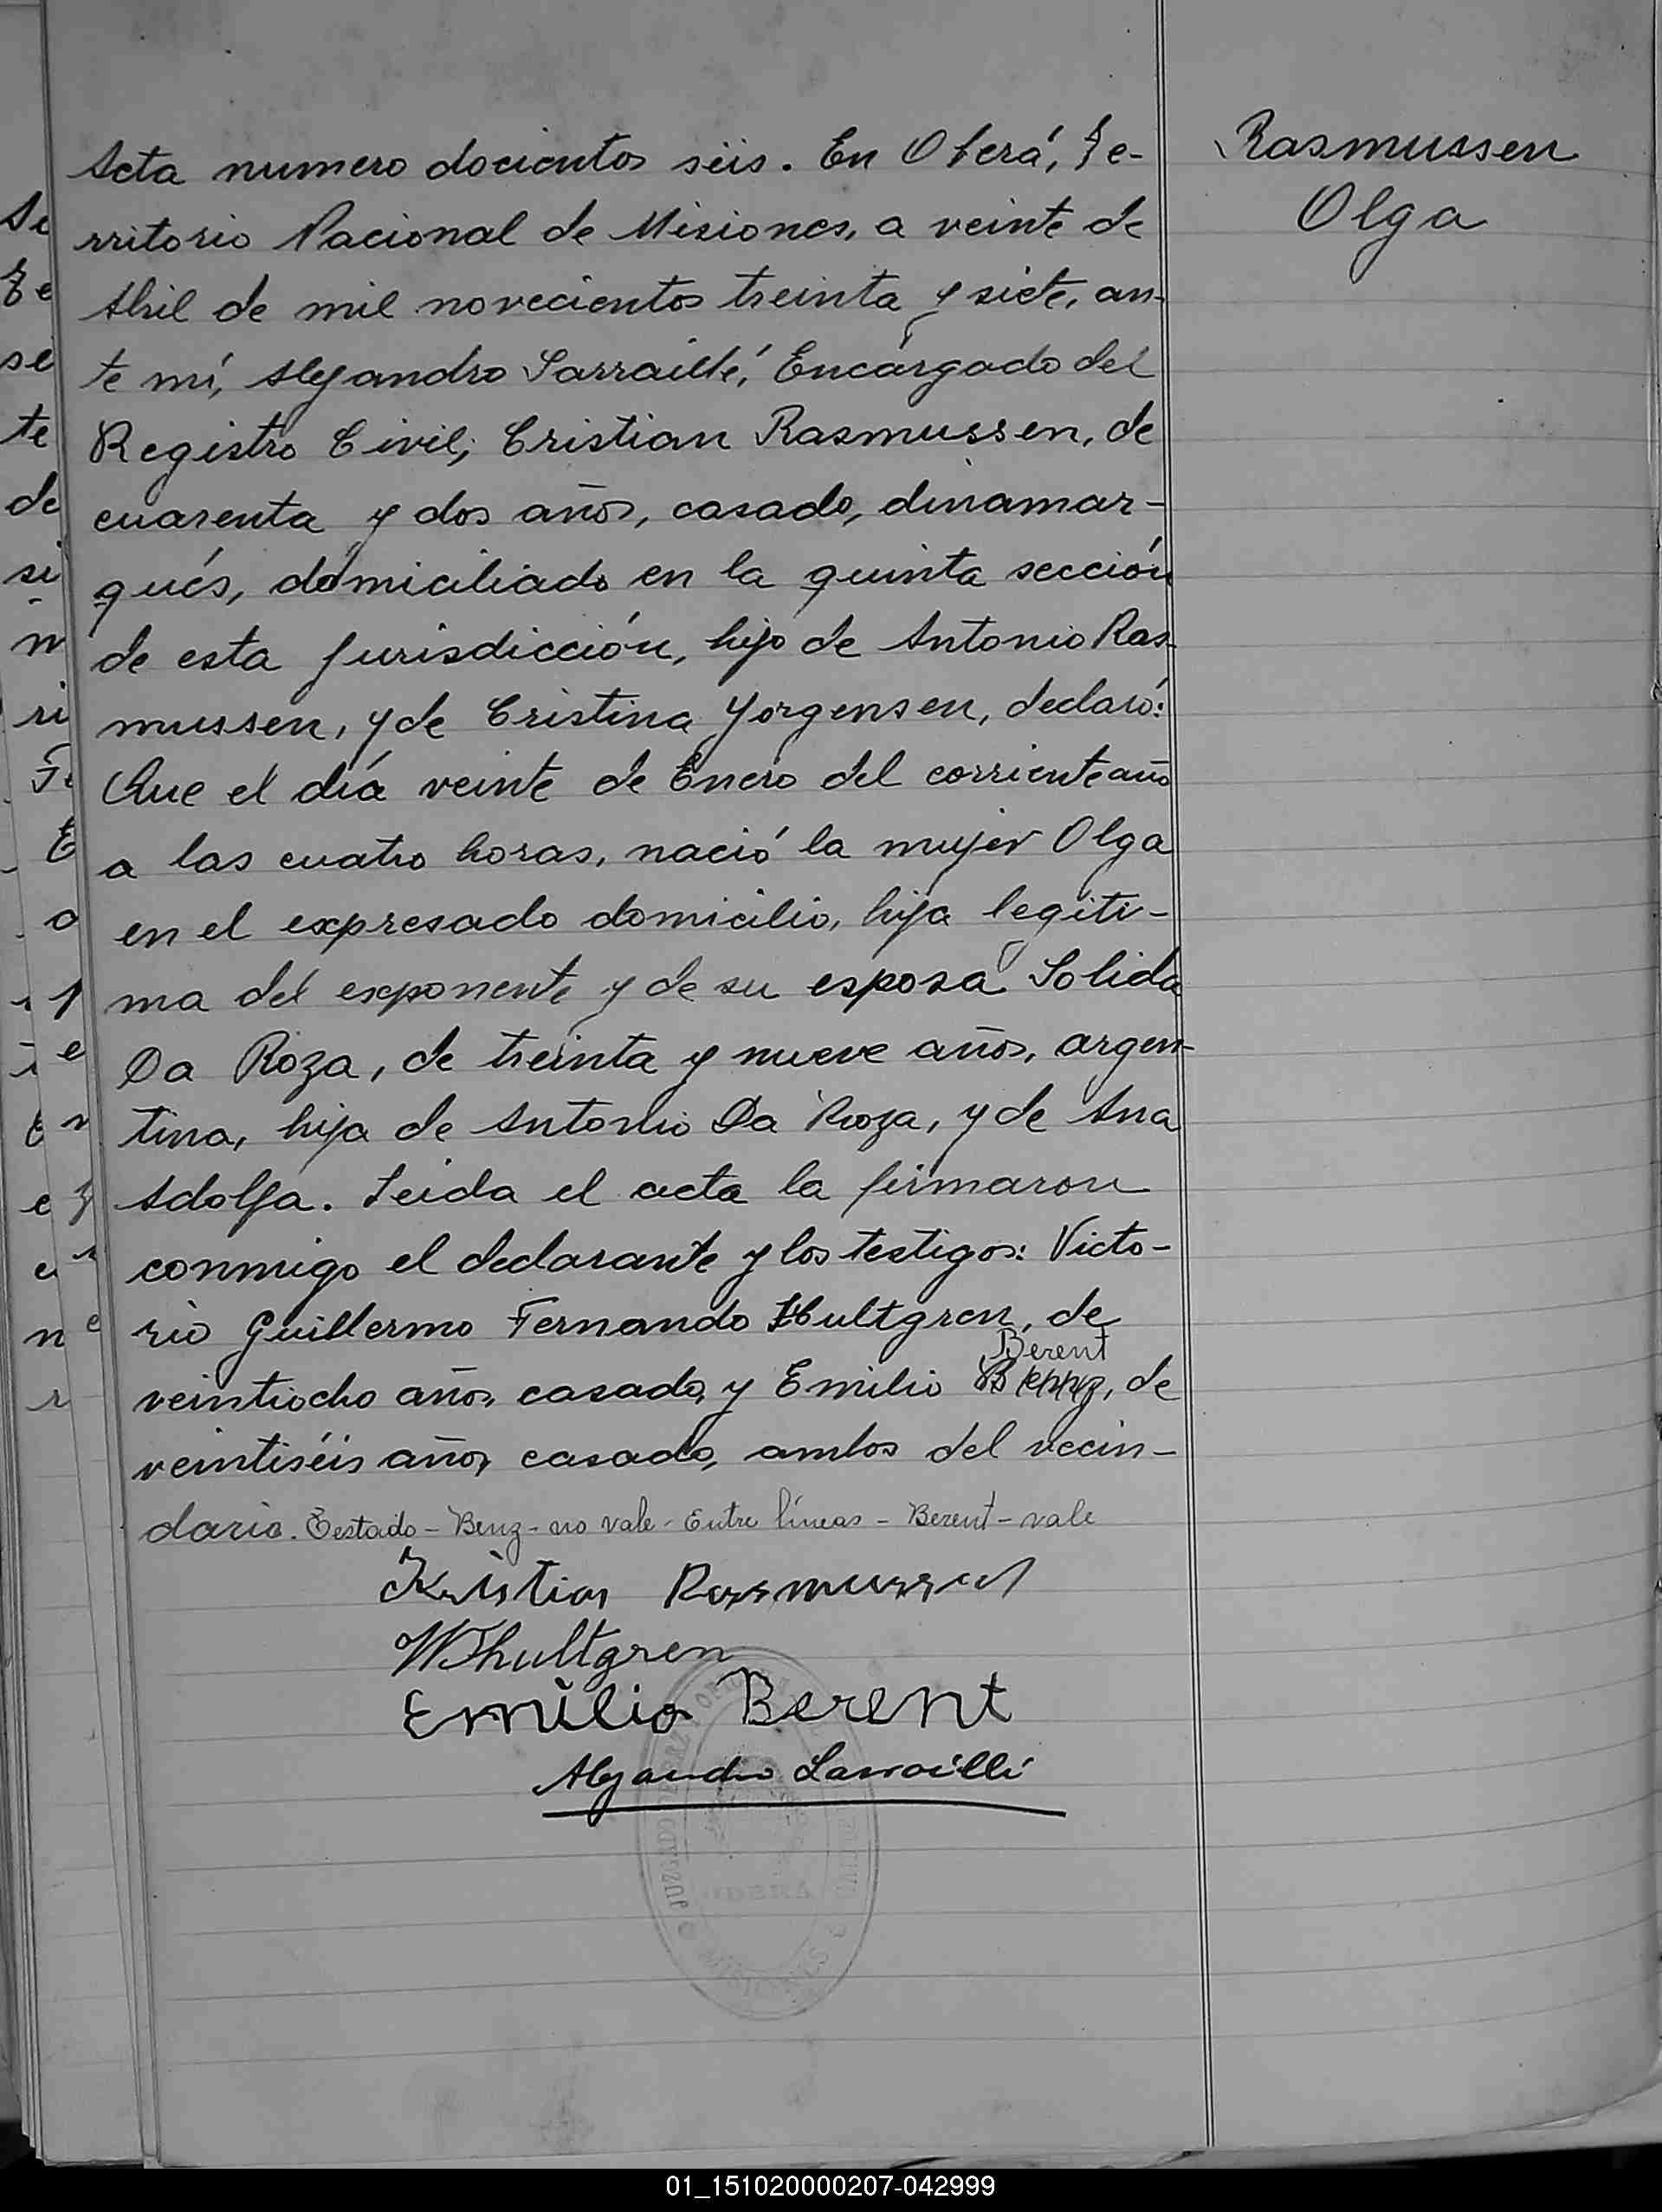 Acta numero docientos séis. En Oberá, Te-
rritorio Nacional de Misiones, a veinte de
Abril de mil novecientos treinta y siete, an-
te mí, Alejandro Sarraillé, Encargado del
Registro Civil; Cristian Rasmussen, de
cuarenta y dos años, casado, dinamar-
qués, domiciliado en la quinta sección
de esta jurisdicción, hijo de Antonio Ras-
mussen, y de Cristina Yorgensen, declaró:
Que el día veinte de Enero del corriente año
a las cuatro horas, nació la mujer Olga
en el expresado domicilio, hija legiti-
ma del exponente y de su esposa Solida
Da Roza, de treinta y nueve años, argen-
tina, hija de Antonio Da Roza, y de Ana
Adolfa. Leida el acta la firmaron
conmigo el declarante y los testigos: Victo-
rio Guillermo Fernando Hultgren, de
Berent
veintiocho años, casado, y Emilio Benz, de
veintiséis años, casado, ambos del vecin-
dario. Testado - Benz - no vale - Entre líneas - Berent - vale
Kristian Rasmussen
WFhultgren
Emilio Berent
Alejandro Sarraillé
Rasmussen
Olga
OBERA
MISIONES
01_151020000207-042999